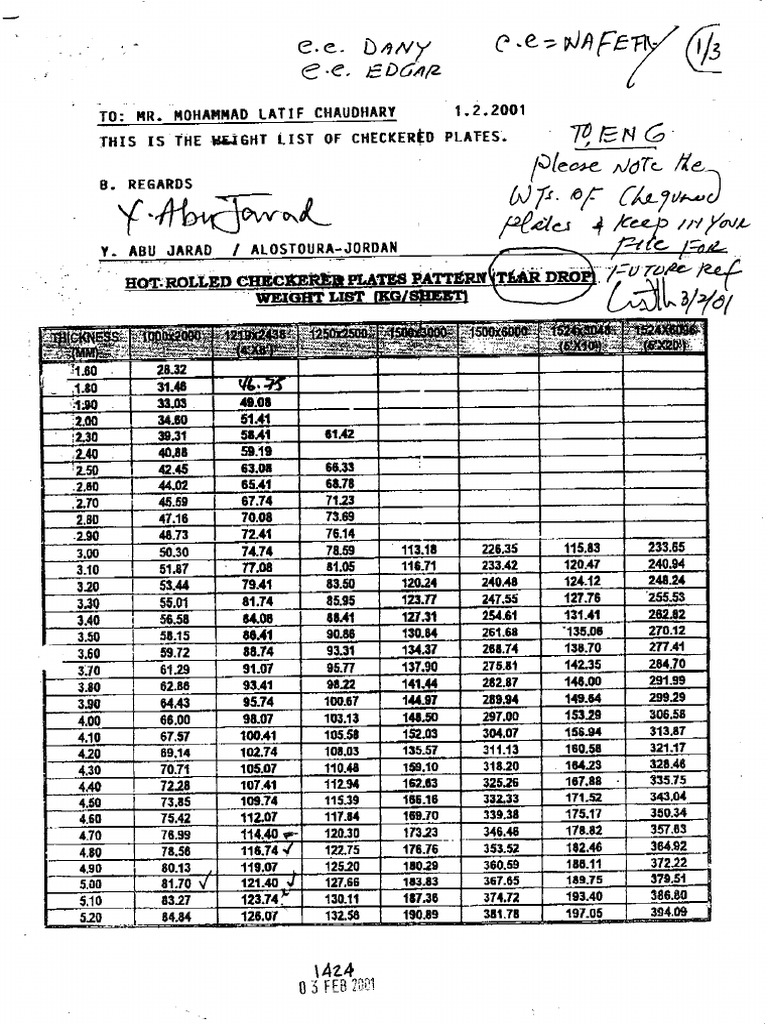 c.c. DANY
c.c. EDGAR
c.c = NAFETH
1/3
TO: MR. MOHAMMAD LATIF CHAUDHARY 1.2.2001
THIS IS THE WEIGHT LIST OF CHECKERED PLATES.
B. REGARDS
Y. Abu Jarad
Y. ABU JARAD / ALOSTOURA-JORDAN
TO, ENG
Please NOTE the
WTS. OF Chequered
Plates & KEEP IN YOUR
FILE FOR
FUTURE Ref
3/2/01
HOT-ROLLED CHECKERED PLATES PATTERN (TEAR DROP)
WEIGHT LIST (KG/SHEET)
THICKNESS (MM) 1000x2000 1219x2438 (4'X8') 1250x2500 1500x3000 1500x6000 1524x3048 (5'X10') 1524X6096 (5'X20')
1.60 28.32
1.80 31.46 46.75
1.90 33.03 49.08
2.00 34.60 51.41
2.30 39.31 58.41 61.42
2.40 40.88 59.19
2.50 42.45 63.08 66.33
2.60 44.02 65.41 68.78
2.70 45.59 67.74 71.23
2.80 47.16 70.08 73.69
2.90 48.73 72.41 76.14
3.00 50.30 74.74 78.59 113.18 226.35 115.83 233.65
3.10 51.87 77.08 81.05 116.71 233.42 120.47 240.94
3.20 53.44 79.41 83.50 120.24 240.48 124.12 248.24
3.30 55.01 81.74 85.95 123.77 247.55 127.76 255.53
3.40 56.58 84.08 88.41 127.31 254.61 131.41 262.82
3.50 58.15 86.41 90.86 130.84 261.68 135.06 270.12
3.60 59.72 88.74 93.31 134.37 268.74 138.70 277.41
3.70 61.29 91.07 95.77 137.90 275.81 142.35 284.70
3.80 62.86 93.41 98.22 141.44 282.87 146.00 291.99
3.90 64.43 95.74 100.67 144.97 289.94 149.64 299.29
4.00 66.00 98.07 103.13 148.50 297.00 153.29 306.58
4.10 67.57 100.41 105.58 152.03 304.07 156.94 313.87
4.20 69.14 102.74 108.03 135.57 311.13 160.58 321.17
4.30 70.71 105.07 110.48 159.10 318.20 164.23 328.46
4.40 72.28 107.41 112.94 162.63 325.26 167.88 335.75
4.50 73.85 109.74 115.39 166.16 332.33 171.52 343.04
4.60 75.42 112.07 117.84 169.70 339.38 175.17 350.34
4.70 76.99 114.40 120.30 173.23 346.46 178.82 357.63
4.80 78.56 116.74 ✓ 122.75 176.76 353.52 182.46 364.92
4.90 80.13 119.07 125.20 180.29 360.59 186.11 372.22
5.00 81.70 ✓ 121.40 ✓ 127.66 183.83 367.65 189.75 379.51
5.10 83.27 123.74 130.11 187.36 374.72 193.40 386.80
5.20 84.84 126.07 132.56 190.89 381.78 197.05 394.09
1424
03 FEB 2001